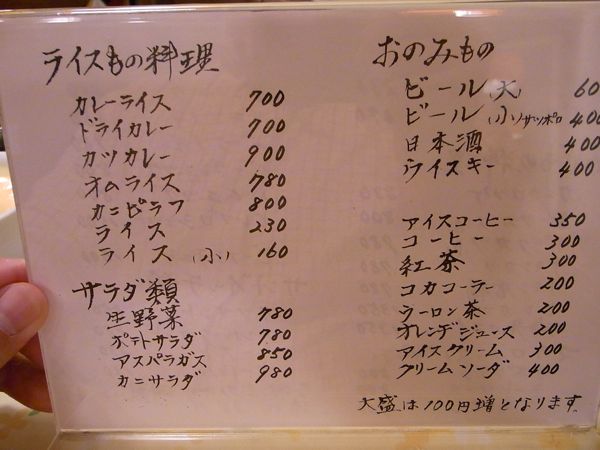 ライスもの料理
カレーライス 700
ドライカレー 700
カツカレー 900
オムライス 780
カニピラフ 800
ライス 230
ライス (小) 160
サラダ類
生野菜 780
ポテトサラダ 780
アスパラガス 850
カニサラダ 980
おのみもの
ビール (大) 60
ビール (小) サッポロ 400
日本酒 400
ウイスキー 400
アイスコーヒー 350
コーヒー 300
紅茶 300
コカコーラー 200
ウーロン茶 200
オレンヂジュース 200
アイスクリーム 300
クリームソーダ 400
大盛は100円増となります。